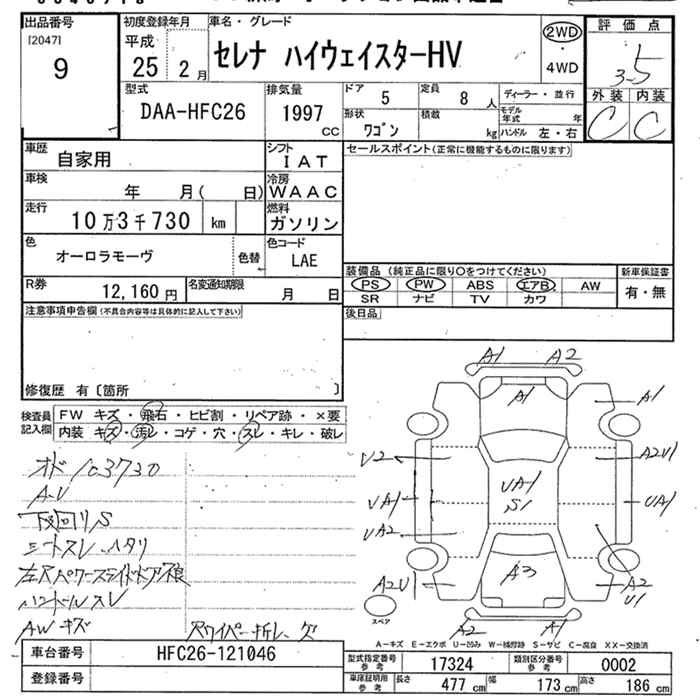 出品番号
[2047]
9
初度登録年月
平成
25 2月
車名・グレード
セレナ ハイウェイスターHV
2WD
・
4WD
評価点
3-5
外装 内装
C C
型式
DAA-HFC26
排気量
1997
CC
ドア
5
定員
8人
ディーラー・並行
形状
ワゴン
積載
kg
モデル年式 年
ハンドル 左・右
車歴
自家用
シフト
IAT
セールスポイント(正常に機能するものに限ります)
車検
年 月( 日)
冷房
WAAC
走行
10万3千730 km
燃料
ガソリン
色
オーロラモーヴ
色替
色コード
LAE
装備品(純正品に限り○をつけてください)
新車保証書
PS PW ABS エアB AW
有・無
SR ナビ TV カワ
R券
12,160円
名変通知期限
月 日
後日品
注意事項申告欄(不具合内容等は具体的に記入して下さい)
修復歴 有〔箇所 〕
検査員記入欄
FW キズ・飛石・ヒビ割・リペア跡・×要
内装 キズ・汚レ・コゲ・穴・スレ・キレ・破レ
オド103730
A-U
下回りS
シートスレ、ヘタリ
左Rパワースライドドア不良
ハンドルスレ
AWキズ
Rワイパー折レ、欠
A1 A2
A1
A1
U2
A2U1
UA1
UA1
S1
UA1
UA2
A2U1
A3
A2
U1
A2 A1
スペア
A-キズ E-エクボ U-凹み W-補修跡 S-サビ C-腐食 XX-交換済
車台番号
HFC26-121046
型式指定番号
参考
17324
類別区分番号
参考
0002
登録番号
車庫証明用
参考
長さ 477cm 幅 173cm 高さ 186cm